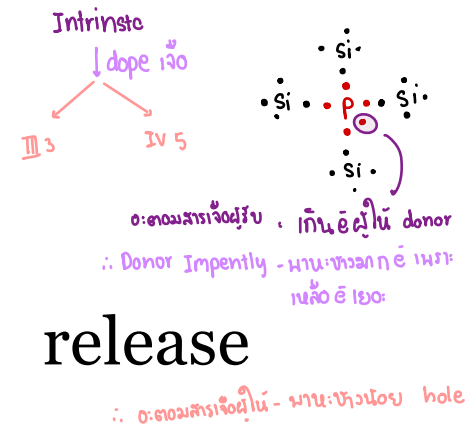 Intrinstc
dope เจือ
III 3
IV 5
Si
Si P Si
Si
อะตอมสารเจือผู้รับ . เกิน ē ผู้ให้ donor
∴ Donor Impently - พาหะข้างมาก ē เพราะ
เหลือ ē เยอะ
release
∴ อะตอมสารเจือผู้ให้ - พาหะข้างน้อย hole